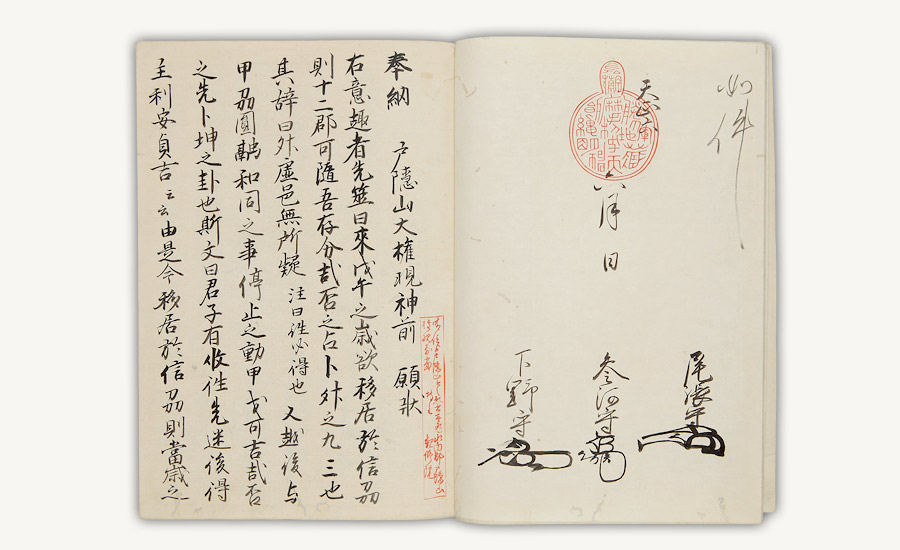 如件
天正
六月日
尾張守
參河守
下野守
奉納 戸隱山大權現神前 願狀
右意趣者先筮曰來戊午之歲欲移居於信刕
則十二郡可隨吾存分哉否之占卜升之九三也
其辭曰升虛邑無所疑 注曰往必得也 又越後与
甲刕圓融和同之事停止之動甲戈可吉哉否
之先卜坤之卦也斯文曰君子有攸往先迷後得
主利安貞吉云云由是今移居於信刕則當歲之